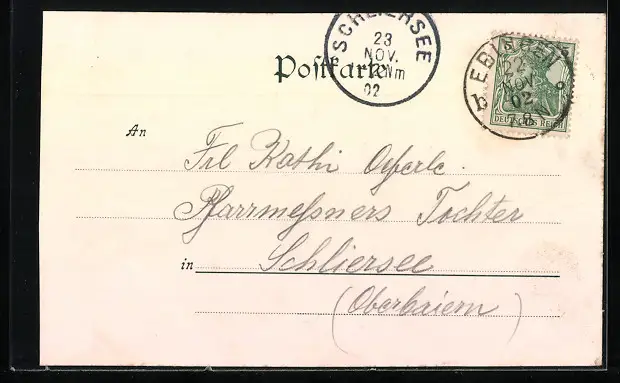 SCHLIERSEE
23
NOV.
Nm
02
Postkarte
EBINGEN
22
NOV
02
7-8
b
DEUTSCHES REICH
An
Frl Kathi
Pfarrmeßners Tochter
in Schliersee
(Oberbaiern)